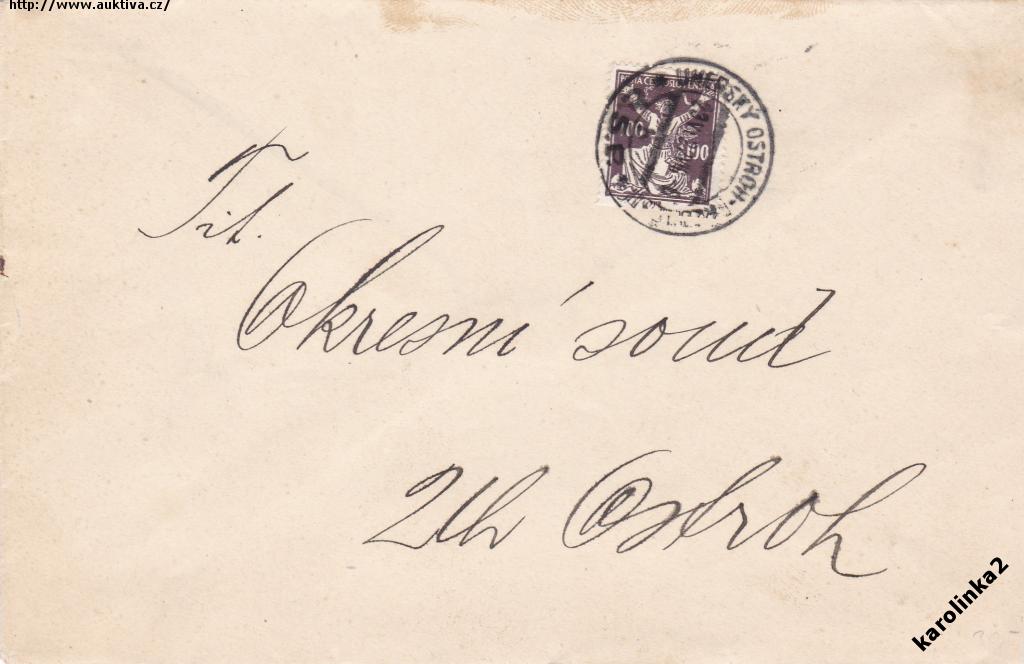 http://www.auktiva.cz/
UHERSKÝ OSTROH
ČSR
100 100
Tit.
Okresní soud
Uh Ostroh
karolinka2